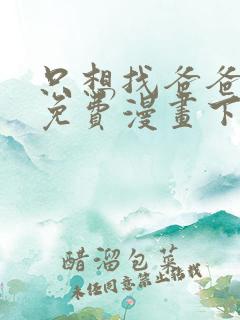 只想找爸爸
免費漫畫下
醋溜包菜
未任同意禁止转找